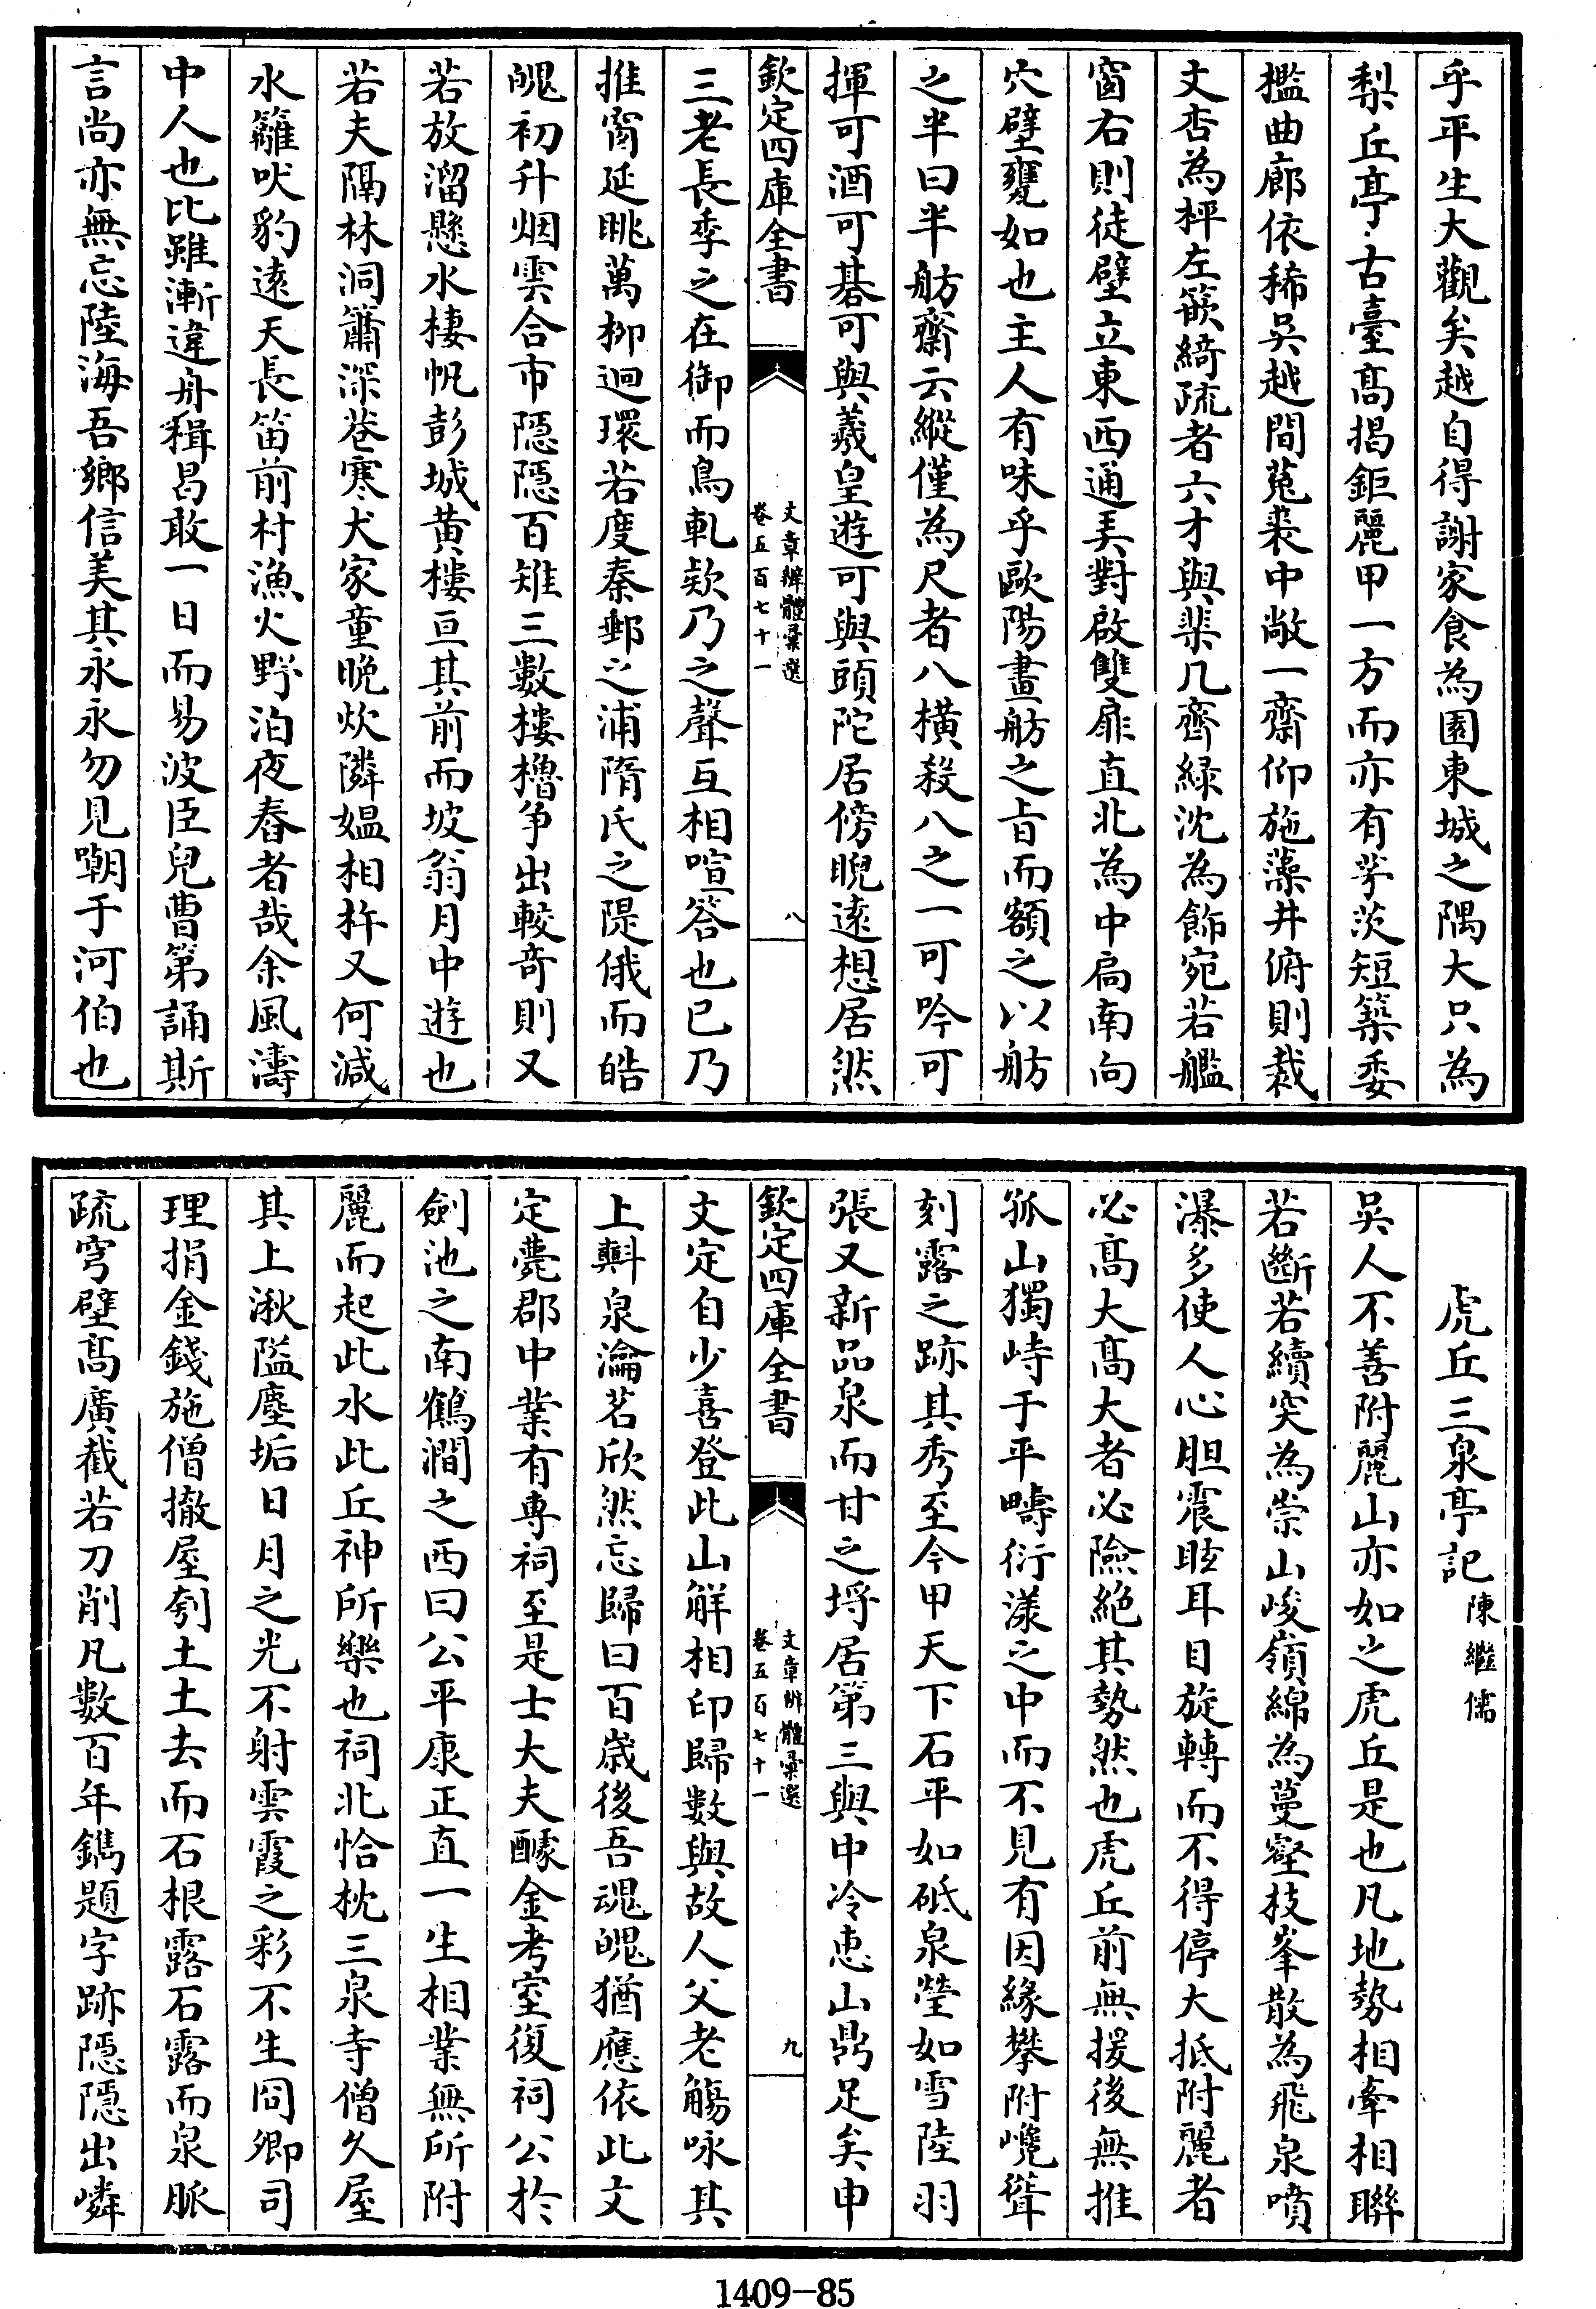 乎平生大觀矣越自得謝家食為園東城之隅大只為
梨丘亭古臺髙揭鉅麗甲一方而亦有茅茨短築委
檻曲廊依稀吳越間菟裘中敞一齋仰施藻井俯則裁
文杏為枰左篏綺疏者六才與棐几齊緑沈為飾宛若艦
窗右則徒壁立東西通羙對啟雙扉直北為中扄南向
穴壁甕如也主人有味乎歐陽畫舫之旨而額之以舫
之半曰半舫齋云縱僅為尺者八横殺八之一可吟可
揮可酒可碁可與羲皇遊可與頭陀居傍睨逺想居然
欽定四庫全書
文章辨體彚選
卷五百七十一
八
三老長季之在御而鳥軋欵乃之聲互相喧答也已乃
推窗延眺萬栁迴環若度秦郵之浦隋氏之隄俄而皓
魄初升烟雲合市隠隠百雉三數樓櫓爭出較竒則又
若放溜懸水棲帆彭城黄樓亘其前而坡翁月中遊也
若夫隔林洞簫深巷寒犬家童晚炊隣媪相杵又何減
水籬吠豹逺天長笛前村漁火野泊夜舂者哉余風濤
中人也比雖漸違舟楫曷敢一日而易波臣兒曹第誦斯
言尚亦無忘陸海吾鄉信美其永永勿見嘲于河伯也
虎丘三泉亭記
陳繼儒
吳人不善附麗山亦如之虎丘是也凡地勢相牽相聯
若斷若續突為崇山峻嶺綿為蔓壑枝峯散為飛泉噴
瀑多使人心胆震眩耳目旋轉而不得停大抵附麗者
必髙大髙大者必險絶其勢然也虎丘前無援後無推
孤山獨峙于平疇衍漾之中而不見有因縁攀附巉聳
刻露之跡其秀至今甲天下石平如砥泉瑩如雪陸羽
張又新品泉而甘之埒居第三與中冷恵山鼎足矣申
欽定四庫全書
文章辨體彚選
卷五百七十一
九
文定自少喜登此山觧相印歸數與故人父老觴咏其
上㪺泉瀹茗欣然忘歸曰百歲後吾魂魄猶應依此文
定薨郡中業有專祠至是士大夫醵金考室復祠公於
劍池之南鶴澗之西曰公平康正直一生相業無所附
麗而起此水此丘神所樂也祠北恰枕三泉寺僧久屋
其上湫隘塵垢日月之光不射雲霞之彩不生冏卿司
理捐金錢施僧撤屋刳土土去而石根露石露而泉脈
疏穹壁髙廣截若刀削凡數百年鐫題字跡隠隱出嶙
1409-85